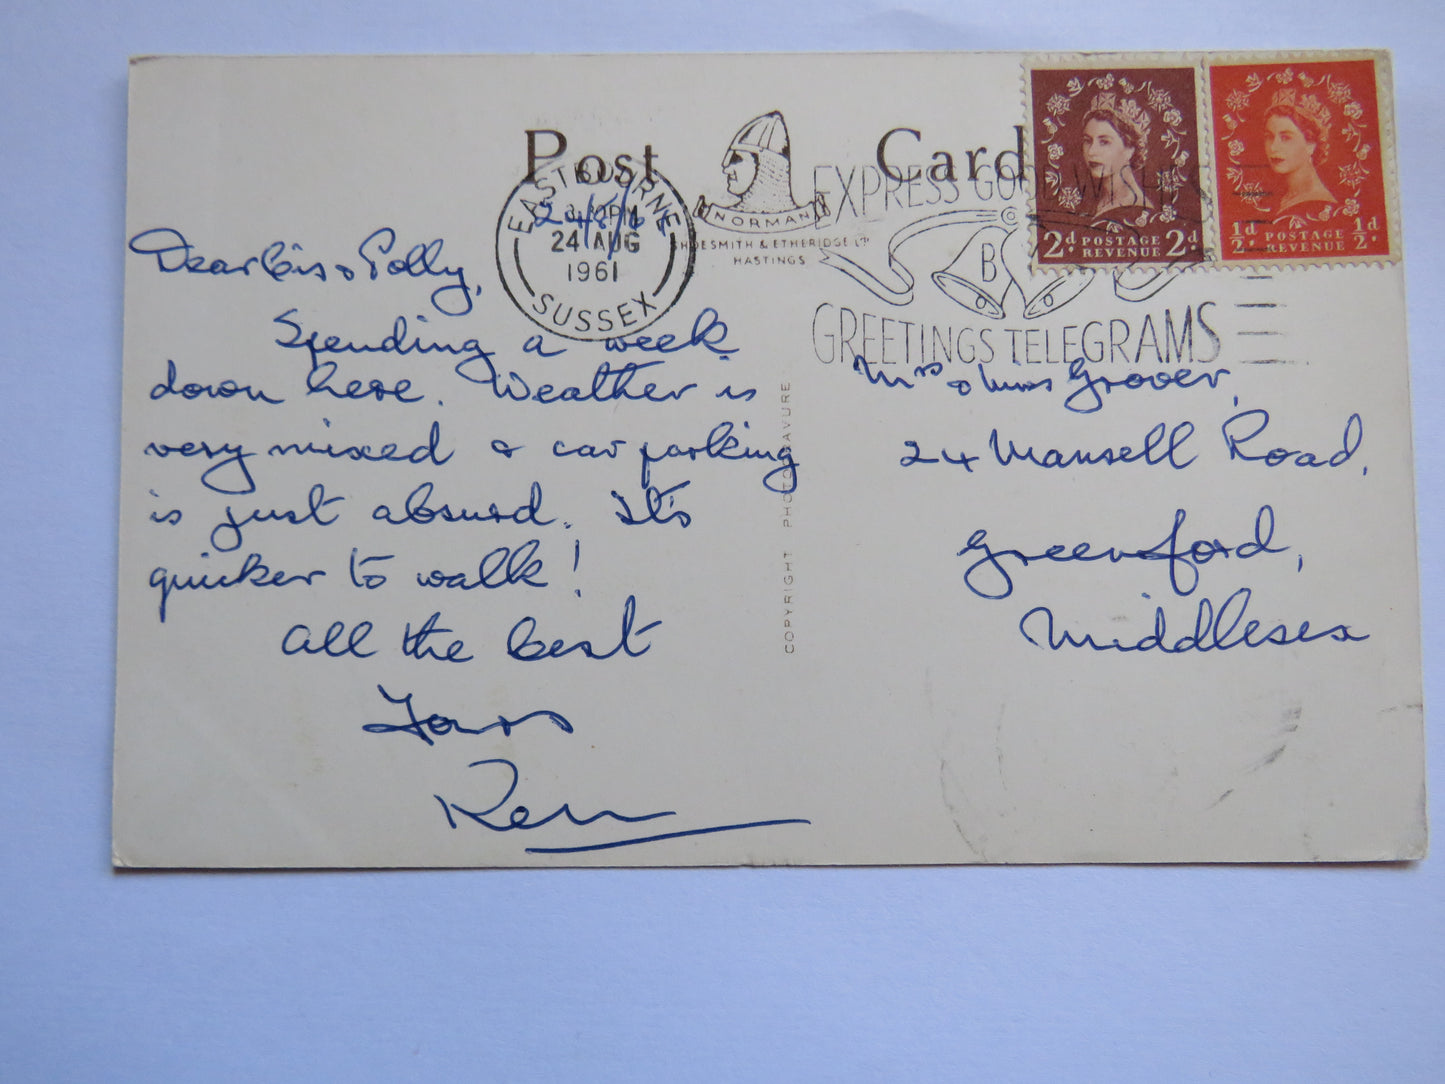 Post Card
NORMAN
SHOESMITH & ETHERIDGE LTD
HASTINGS
EASTBOURNE
24 AUG
1961
SUSSEX
EXPRESS GOOD WISHES
B
GREETINGS TELEGRAMS
2d POSTAGE REVENUE 2d
½d POSTAGE REVENUE ½d
24/8/61
Dear Cis & Polly,
Spending a week
down here. Weather is
very mixed & car parking
is just absurd. It's
quicker to walk!
All the best
Yours
Ken
COPYRIGHT PHOTOGRAVURE
Mrs & Miss Groover,
24 Mansell Road,
Greenford,
Middlesex